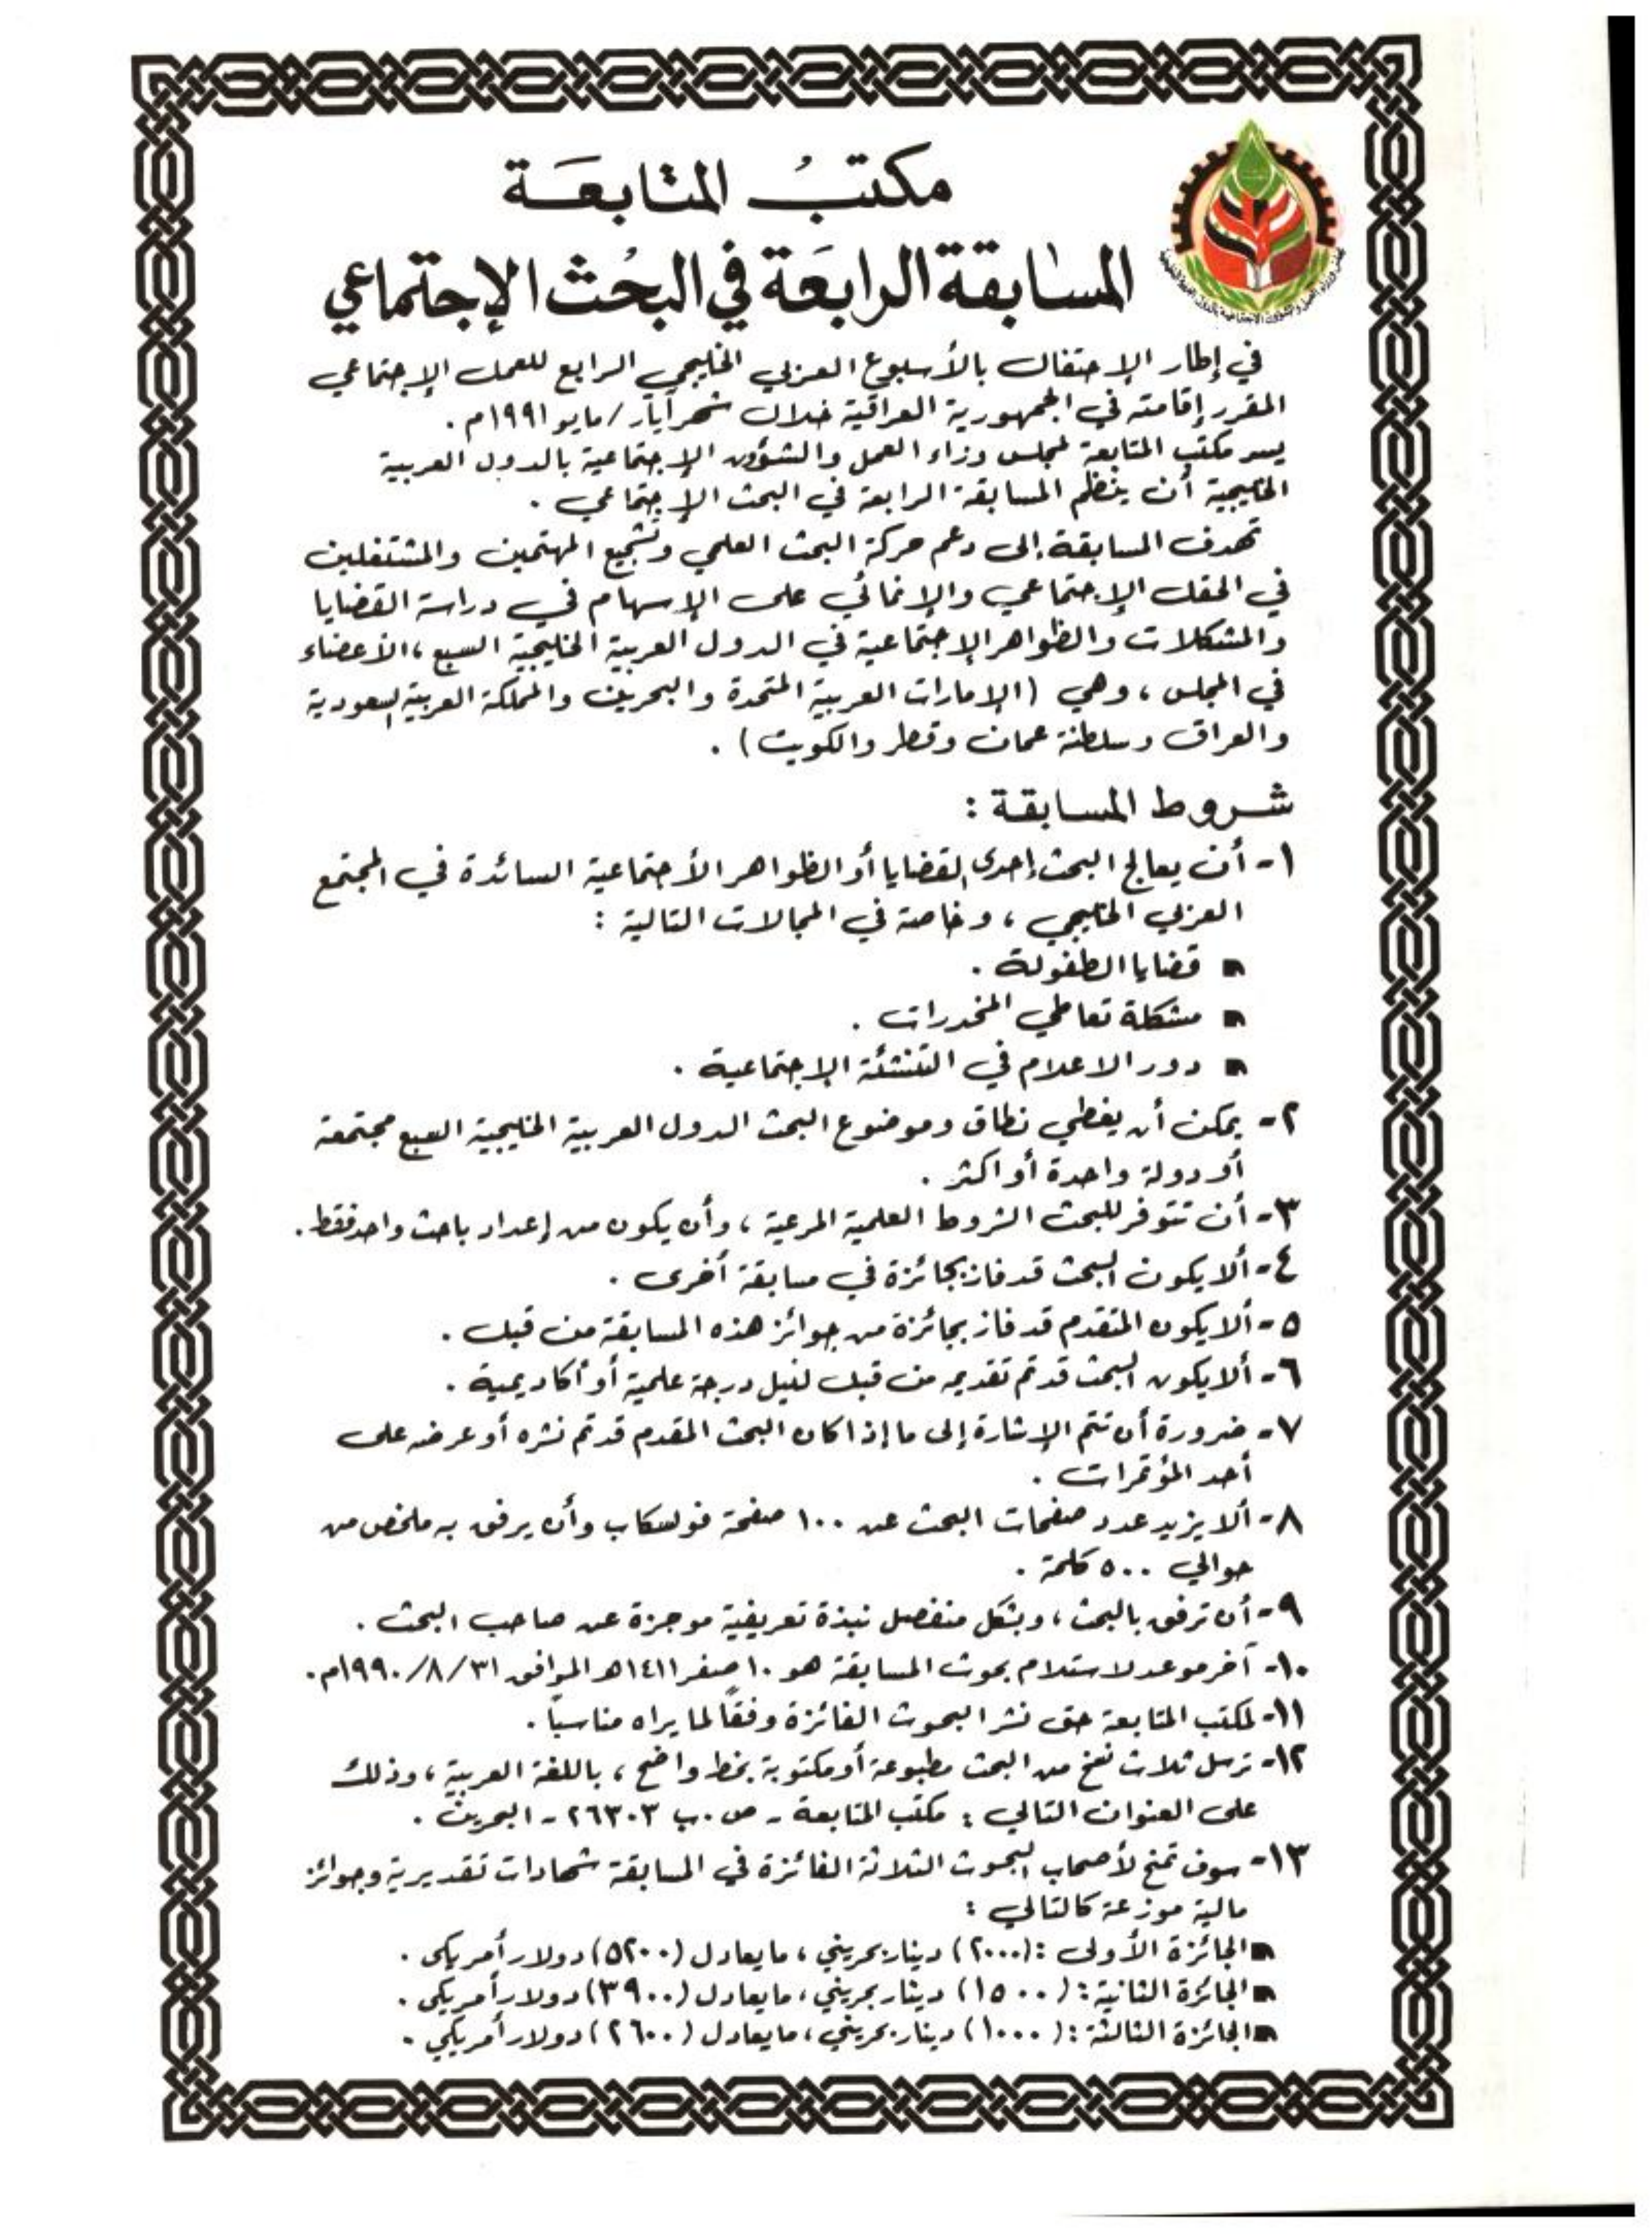 مكتبُ المتابعَة
المسابقة الرابعَة في البحُث الإجتماعي
في إطار الإحتفال بالأسبوع العربي الخليجي الرابع للعمل الإجتماعي
المقرر إقامته في الجمهورية العراقية خلال شهر آيار/مايو ١٩٩١م .
يسر مكتب المتابعة لمجلس وزراء العمل والشؤون الإجتماعية بالدول العربية
الخليجية أن ينظم المسابقة الرابعة في البحث الإجتماعي .
تهدف المسابقة إلى دعم حركة البحث العلمي وتشجيع المهتمين والمشتغلين
في الحقل الإجتماعي والإنمائي على الإسهام في دراسة القضايا
والمشكلات والظواهر الإجتماعية في الدول العربية الخليجية السبع ، الأعضاء
في المجلس ، وهي (الإمارات العربية المتحدة والبحرين والمملكة العربية السعودية
والعراق وسلطنة عمان وقطر والكويت) .
شروط المسابقة :
١- أن يعالج البحث إحدى القضايا أو الظواهر الأجتماعية السائدة في المجتمع
العربي الخليجي ، وخاصة في المجالات التالية :
قضايا الطفولة .
مشكلة تعاطي المخدرات .
دور الاعلام في التنشئة الإجتماعية .
٢- يمكن أن يغطي نطاق وموضوع البحث الدول العربية الخليجية السبع مجتمعة
أو دولة واحدة أو اكثر .
٣- أن تتوفر للبحث الشروط العلمية المرعية ، وأن يكون من إعداد باحث واحد فقط .
٤- ألا يكون البحث قد فاز بجائزة في مسابقة أخرى .
٥- ألا يكون المتقدم قد فاز بجائزة من جوائز هذه المسابقة من قبل .
٦- ألا يكون البحث قد تم تقديمه من قبل لنيل درجة علمية أو أكاديمية .
٧- ضرورة أن تتم الإشارة إلى ما إذا كان البحث المقدم قد تم نشره أو عرضه على
أحد المؤتمرات .
٨- ألا يزيد عدد صفحات البحث عن ١٠٠ صفحة فولسكاب وأن يرفق به ملخص من
حوالي ٥٠٠ كلمة .
٩- أن ترفق بالبحث ، وبشكل منفصل نبذة تعريفية موجزة عن صاحب البحث .
١٠- آخر موعد لاستلام بحوث المسابقة هو ١٠ صفر ١٤١١هـ الموافق ٣١/٨/١٩٩٠م .
١١- لمكتب المتابعة حق نشر البحوث الفائزة وفقاً لما يراه مناسباً .
١٢- ترسل ثلاث نسخ من البحث مطبوعة أو مكتوبة بخط واضح ، باللغة العربية ، وذلك
على العنوان التالي : مكتب المتابعة - ص.ب ٢٦٣٠٣ - البحرين .
١٣- سوف تمنح لأصحاب البحوث الثلاثة الفائزة في المسابقة شهادات تقديرية وجوائز
مالية موزعة كالتالي :
الجائزة الأولى : (٢٠٠٠) دينار بحريني ، مايعادل (٥٢٠٠) دولار أمريكي .
الجائزة الثانية : (١٥٠٠) دينار بحريني ، مايعادل (٣٩٠٠) دولار أمريكي .
الجائزة الثالثة : (١٠٠٠) دينار بحريني ، مايعادل (٢٦٠٠) دولار أمريكي .